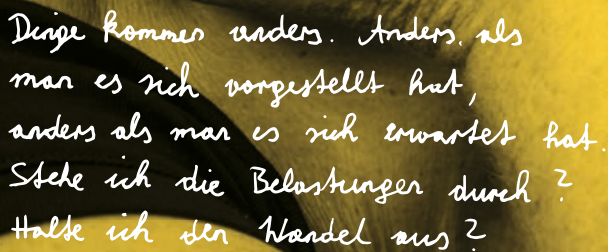 Dinge kommen anders. Anders, als
man es sich vorgestellt hat,
anders als man es sich erwartet hat.
Stehe ich die Belastungen durch?
Halte ich den Wandel aus?